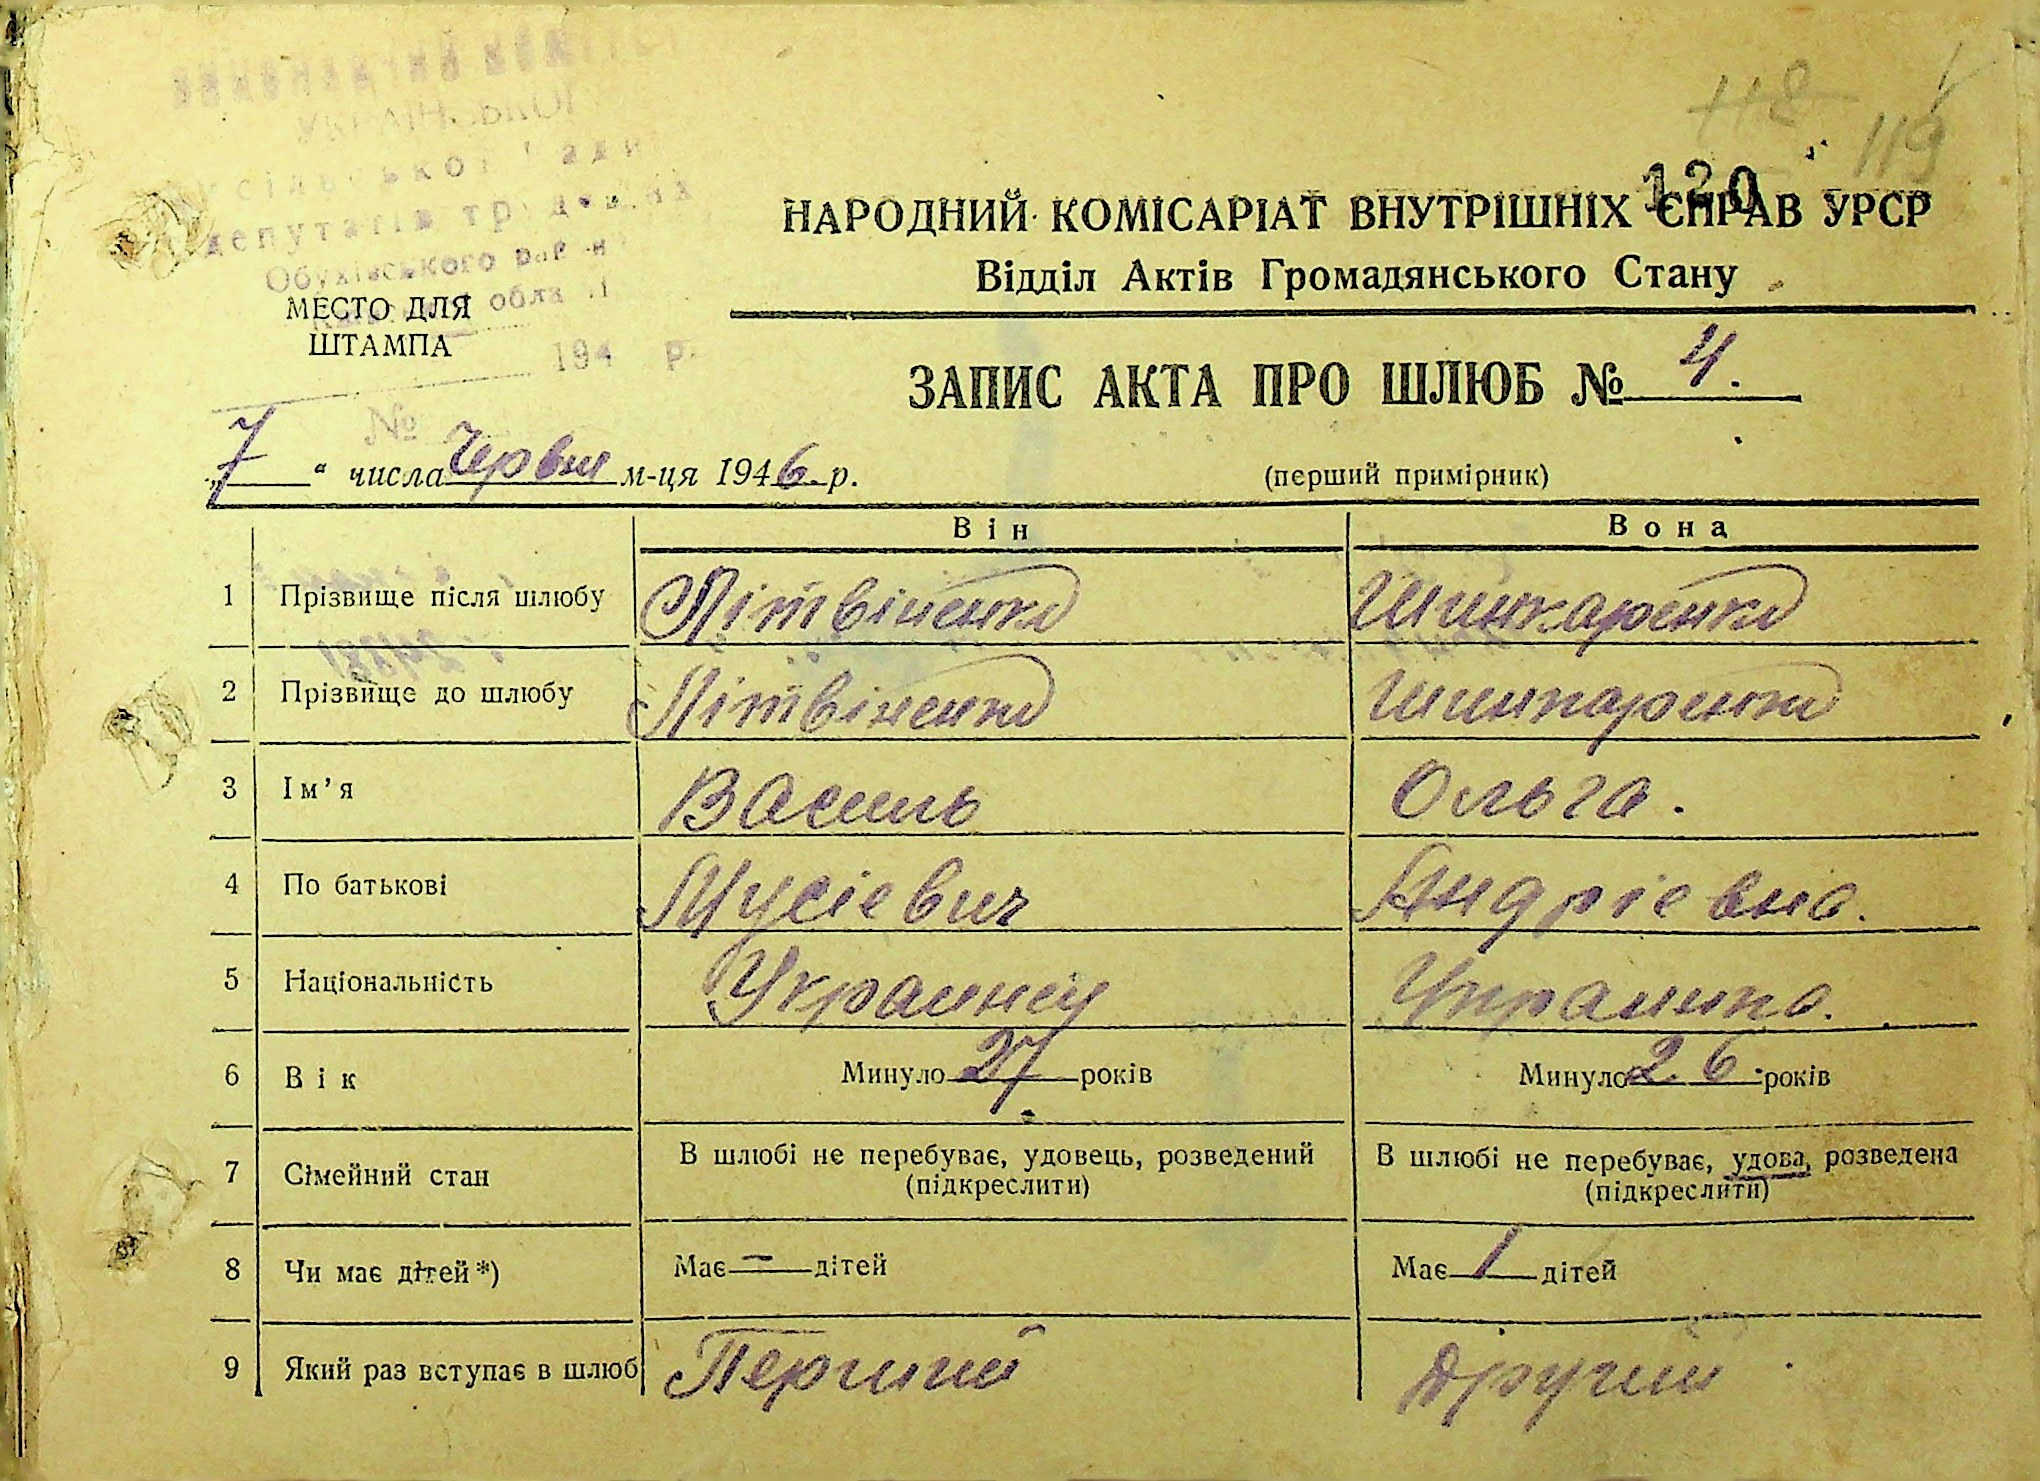 УКРАЇНСЬКОЇ
депутатів трудящих
Обухівського
МЕСТО ДЛЯ
ШТАМПА
194 р.
№
112
119
120
НАРОДНИЙ КОМІСАРІАТ ВНУТРІШНІХ СПРАВ УРСР
Відділ Актів Громадянського Стану
ЗАПИС АКТА ПРО ШЛЮБ № 4.
„7“ числа Червня м-ця 1946 р.
(перший примірник)
Він Вона
1 Прізвище після шлюбу Літвіненко Шинкаренко
2 Прізвище до шлюбу Літвіненко Шинкаренко
3 Ім’я Василь Ольга.
4 По батькові Мусієвич Андрієвна.
5 Національність Украинец Украинка.
6 Вік Минуло 27 років Минуло 26 років
7 Сімейний стан В шлюбі не перебуває, удовець, розведений В шлюбі не перебуває, удова, розведена
(підкреслити) (підкреслити)
8 Чи має дітей*) Має — дітей Має 1 дітей
9 Який раз вступає в шлюб Перший Другий